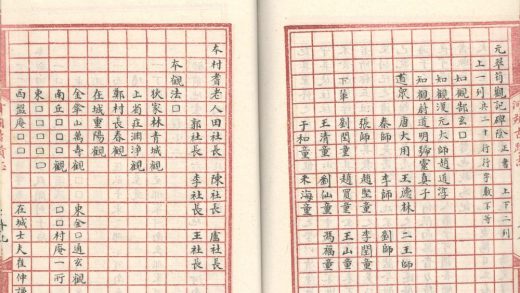 元萃筍觀記碑陰正書上下二列
上一列共二十行行字數不等
知觀郜玄口
知觀復元大師趙道淳
知觀蔚道明號靈真子
道眾 唐大用 王德林
秦師 李師 二王師
張師 趙堅童 劉師
下輩 劉閏童 趙買童 李閏童
王清童 劉仙童 王山童
于和童 來海童 馮福童
本村耆老人田社長 陳社長 盧社長
郭社長 李社長 王社長
本觀法口
狄家林青城觀
上省莊澗淨觀
郭村長春觀
在城重陽觀
金峯山萬壽觀 東金口通玄觀
南丘口口口觀 口口村庵一所
東口口口口觀
西盤庵口口 在城士夫崔仲謙